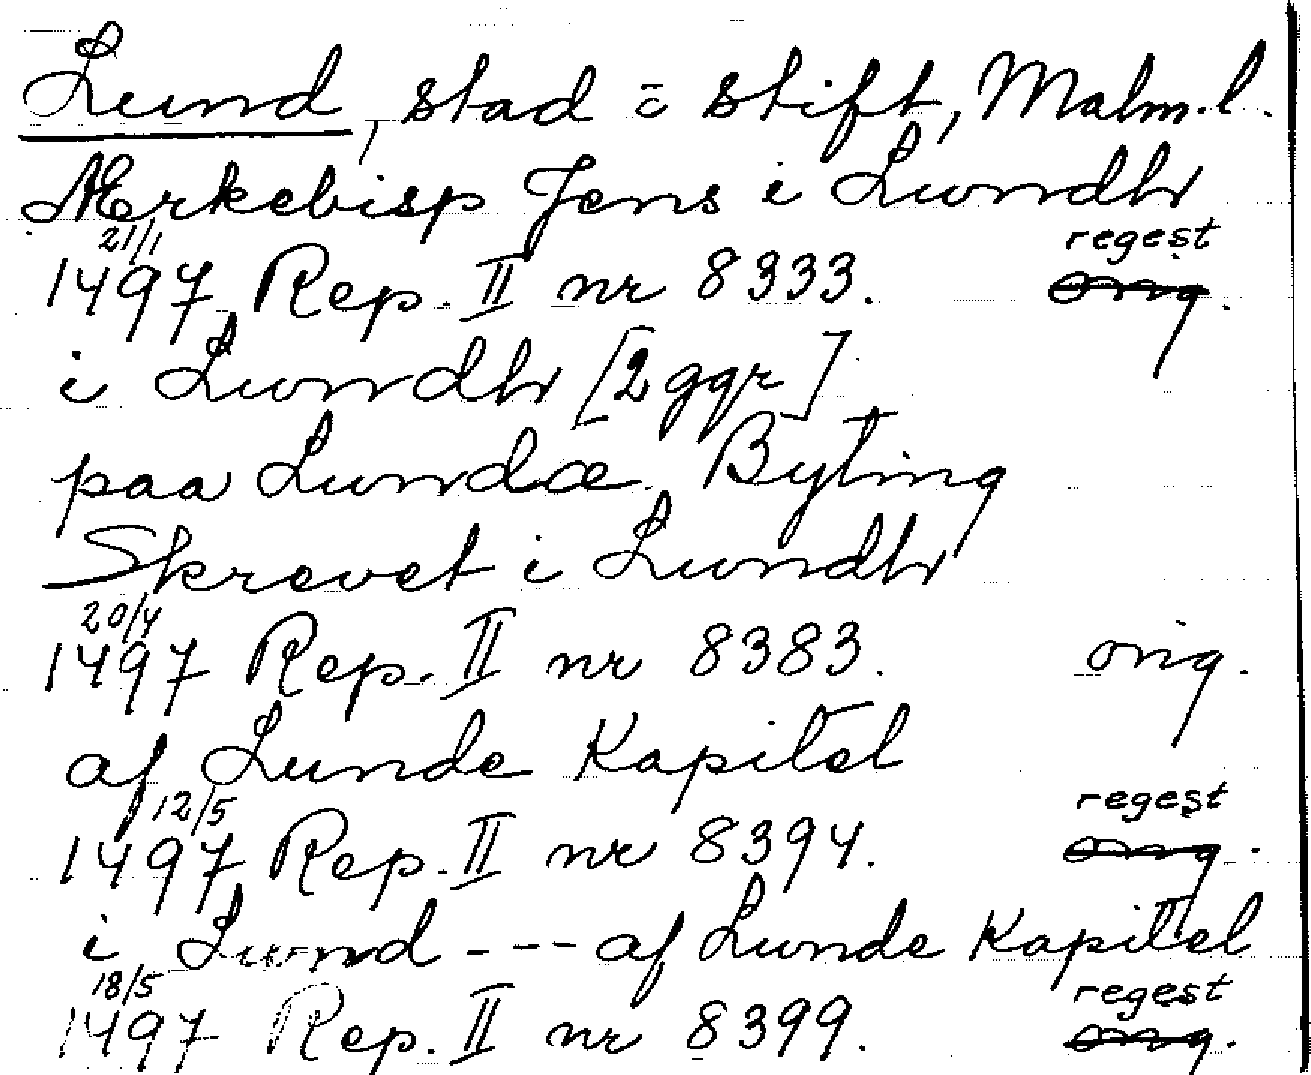 Lund, stad o stift, Malm.l.
Ærkebisp Jens i Lundh
21/1 regest
1497 Rep. II nr 8333. orig.
i Lundh [2 ggr]
paa Lundæ Byting
Skrevet i Lundh
20/4
1497 Rep. II nr 8383. orig.
af Lunde Kapitel
12/5 regest
1497 Rep. II nr 8394. orig.
i Lund --- af Lunde Kapitel
18/5 regest
1497 Rep. II nr 8399. orig.